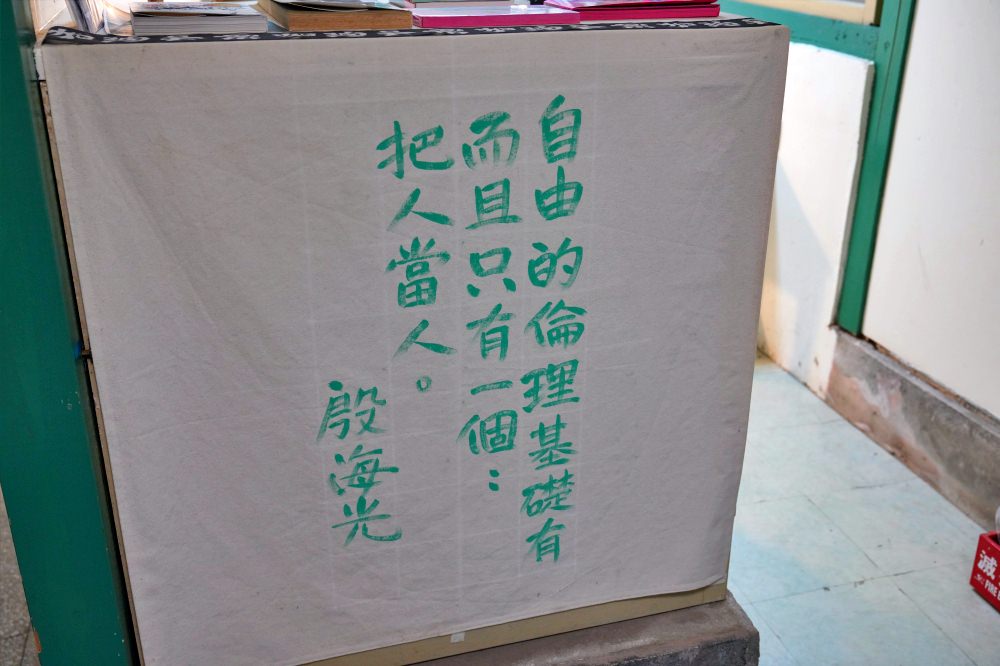 自由的倫理基礎有
而且只有一個：
把人當人。
殷海光
滅
FIRE